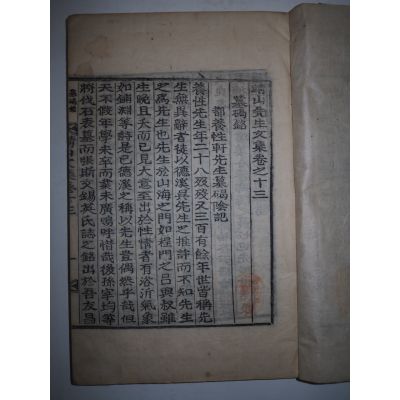 山先生文集卷之十三
墓碣銘
都養性軒先生墓碣陰記
養性先生年二十八歿歿又三百有餘年世嘗稱先
生無異辭者徒以德溪吳先生之推許而不知先生
之爲先生於山海之門如程門之呂與叔雖
生晩且夭而已見大意至出於性情者有浴沂氣象
如鋪淵等詩是已德溪之稱以先生豈偶然乎哉但
天不年未廣嗚呼惜哉後孫宰均等
將伐石表墓而張斯文錫英氏誌之銘出於吾友昌